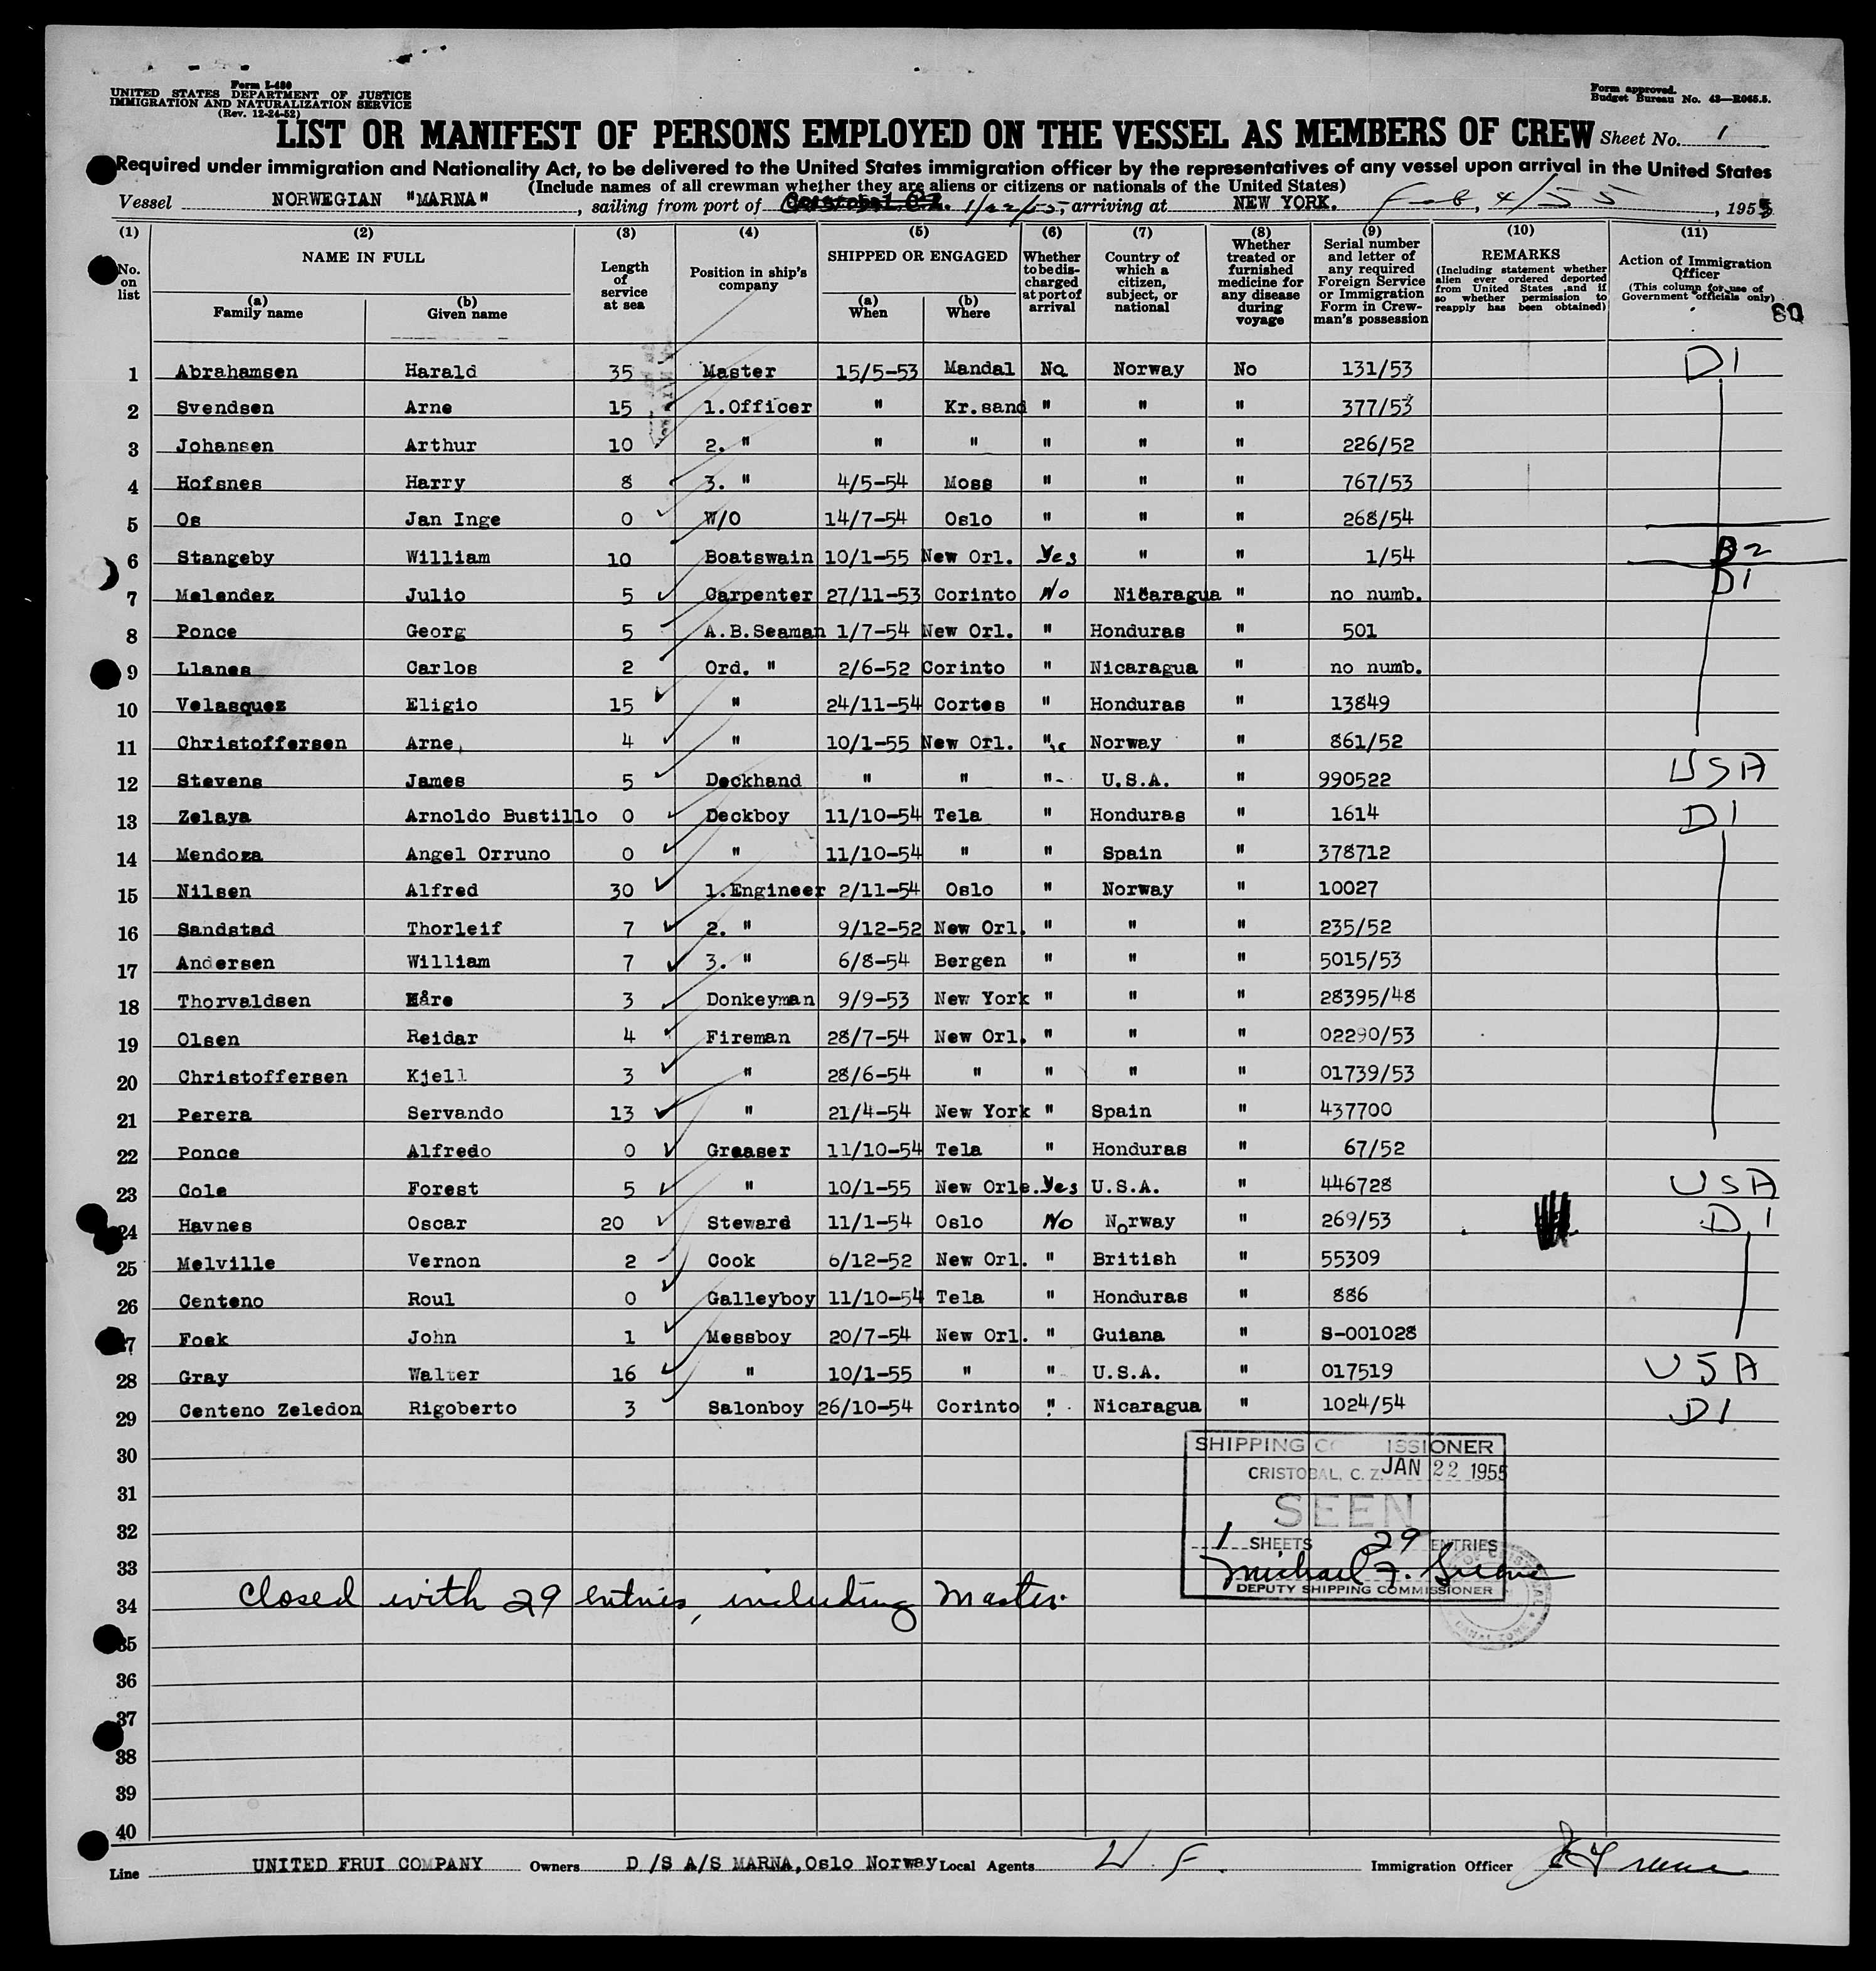 Form I-480
UNITED STATES DEPARTMENT OF JUSTICE
IMMIGRATION AND NATURALIZATION SERVICE
(Rev. 12-24-52)
Form approved.
Budget Bureau No. 43—R065.5.
LIST OR MANIFEST OF PERSONS EMPLOYED ON THE VESSEL AS MEMBERS OF CREW Sheet No. 1
Required under immigration and Nationality Act, to be delivered to the United States immigration officer by the representatives of any vessel upon arrival in the United States
(Include names of all crewman whether they are aliens or citizens or nationals of the United States)
Vessel NORWEGIAN "MARNA", sailing from port of Cristobal CZ. 1/22/55, arriving at NEW YORK. Feb, 4/55, 1955
(1) (2) (3) (4) (5) (6) (7) (8) (9) (10) (11)
No. on list
NAME IN FULL
(a) Family name
(b) Given name
Length of service at sea
Position in ship's company
SHIPPED OR ENGAGED
(a) When
(b) Where
Whether to be discharged at port of arrival
Country of which a citizen, subject, or national
Whether treated or furnished medicine for any disease during voyage
Serial number and letter of any required Foreign Service or Immigration Form in Crewman's possession
REMARKS
(Including statement whether alien ever ordered deported from United States and if so whether permission to reapply has been obtained)
Action of Immigration Officer
(This column for use of Government officials only)
80
1 Abrahamsen Harald 35 Master 15/5-53 Mandal No Norway No 131/53 D1
2 Svendsen Arne 15 1.Officer " Kr.sand " " " 377/53
3 Johansen Arthur 10 2. " " " " " " 226/52
4 Hofsnes Harry 8 3. " 4/5-54 Moss " " " 767/53
5 Os Jan Inge 0 W/O 14/7-54 Oslo " " " 268/54
6 Stangeby William 10 Boatswain 10/1-55 New Orl. Yes " " 1/54 B2
7 Melendez Julio 5 Carpenter 27/11-53 Corinto No Nicaragua " no numb. D1
8 Ponce Georg 5 A.B.Seaman 1/7-54 New Orl. " Honduras " 501
9 Llanes Carlos 2 Ord. " 2/6-52 Corinto " Nicaragua " no numb.
10 Velasquez Eligio 15 " 24/11-54 Cortes " Honduras " 13849
11 Christoffersen Arne 4 " 10/1-55 New Orl. " Norway " 861/52
12 Stevens James 5 Deckhand " " " U.S.A. " 990522 USA
13 Zelaya Arnoldo Bustillo 0 Deckboy 11/10-54 Tela " Honduras " 1614 D1
14 Mendoza Angel Orruno 0 " 11/10-54 " " Spain " 378712
15 Nilsen Alfred 30 1.Engineer 2/11-54 Oslo " Norway " 10027
16 Sandstad Thorleif 7 2. " 9/12-52 New Orl. " " " 235/52
17 Andersen William 7 3. " 6/8-54 Bergen " " " 5015/53
18 Thorvaldsen Håre 3 Donkeyman 9/9-53 New York " " " 28395/48
19 Olsen Reidar 4 Fireman 28/7-54 New Orl. " " " 02290/53
20 Christoffersen Kjell 3 " 28/6-54 " " " " 01739/53
21 Perera Servando 13 " 21/4-54 New York " Spain " 437700
22 Ponce Alfredo 0 Greaser 11/10-54 Tela " Honduras " 67/52
23 Cole Forest 5 " 10/1-55 New Orle. Yes U.S.A. " 446728 USA
24 Havnes Oscar 20 Steward 11/1-54 Oslo No Norway " 269/53 D1
25 Melville Vernon 2 Cook 6/12-52 New Orl. " British " 55309
26 Centeno Roul 0 Galleyboy 11/10-54 Tela " Honduras " 886
27 Foek John 1 Messboy 20/7-54 New Orl. " Guiana " S-001028
28 Gray Walter 16 " 10/1-55 " " U.S.A. " 017519 USA
29 Centeno Zeledon Rigoberto 3 Salonboy 26/10-54 Corinto " Nicaragua " 1024/54 D1
30
31
32
33
34
35
36
37
38
39
40
SHIPPING COMMISSIONER
CRISTOBAL, C. Z. JAN 22 1955
SEEN
1 SHEETS 29 ENTRIES
Michael F.
DEPUTY SHIPPING COMMISSIONER
CANAL ZONE
Closed with 29 entries, including Master.
Line UNITED FRUI COMPANY Owners D/S A/S MARNA, Oslo Norway Local Agents Immigration Officer